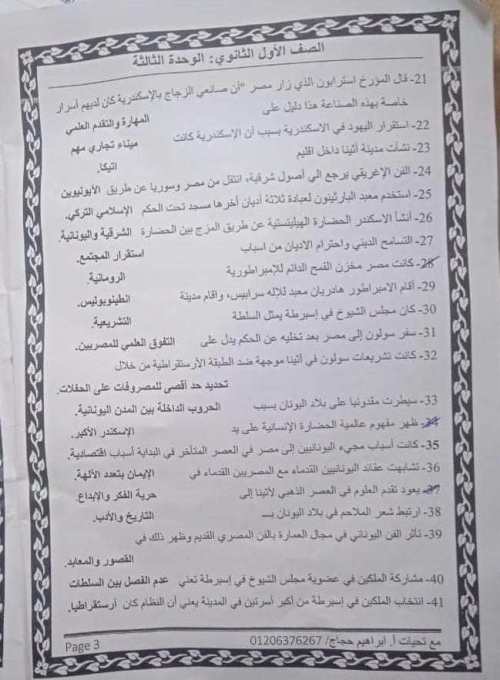 الصف الأول الثانوي: الوحدة الثالثة
21- قال المؤرخ استرابون الذي زار مصر "أن صانعي الزجاج بالإسكندرية كان لديهم أسرار
خاصة بهذه الصناعة هذا دليل على المهارة والتقدم العلمي
22- استقرار اليهود في الاسكندرية بسبب أن الإسكندرية كانت ميناء تجاري مهم
23- نشأت مدينة أثينا داخل اقليم اتيكا.
24- الفن الإغريقي يرجع الي أصول شرقية، انتقل من مصر وسوريا عن طريق الأيونيون
25- استخدم معبد البارثينون لعبادة ثلاثة أديان أخرها مسجد تحت الحكم الإسلامي التركي.
26- أنشأ الاسكندر الحضارة الهيلينستية عن طريق المزج بين الحضارة الشرقية واليونانية.
27- التسامح الديني واحترام الاديان من اسباب استقرار المجتمع.
28- كانت مصر مخزن القمح الدائم للإمبراطورية الرومانية.
29- أقام الامبراطور هادريان معبد للإله سرابيس، واقام مدينة انطينوبوليس.
30- كان مجلس الشيوخ في إسبرطة يمثل السلطة التشريعية.
31- سفر سولون إلى مصر بعد تخليه عن الحكم يدل على التفوق العلمي للمصريين.
32- كانت تشريعات سولون في أثينا موجهة ضد الطبقة الأرستقراطية من خلال
تحديد حد أقصى للمصروفات على الحفلات.
33- سيطرت مقدونيا على بلاد اليونان بسبب الحروب الداخلة بين المدن اليونانية.
34- ظهر مفهوم عالمية الحضارة الإنسانية على يد الإسكندر الأكبر.
35- كانت أسباب مجيء اليونانيين إلى مصر في العصر المتأخر في البداية أسباب اقتصادية.
36- تشابهت عقائد اليونانيين القدماء مع المصريين القدماء في الإيمان بتعدد الآلهة.
37- يعود تقدم العلوم في العصر الذهبي لأثينا إلى حرية الفكر والإبداع.
38- ارتبط شعر الملاحم في بلاد اليونان بـــ التاريخ والأدب.
39- تأثر الفن اليوناني في مجال العمارة بالفن المصري القديم وظهر ذلك في
القصور والمعابد.
40- مشاركة الملكين في عضوية مجلس الشيوخ في إسبرطة تعني عدم الفصل بين السلطات
41- انتخاب الملكين في إسبرطة من أكبر أسرتين في المدينة يعني أن النظام كان أرستقراطيا.
مع تحيات أ. ابراهيم حجاج/ 01206376267 Page 3